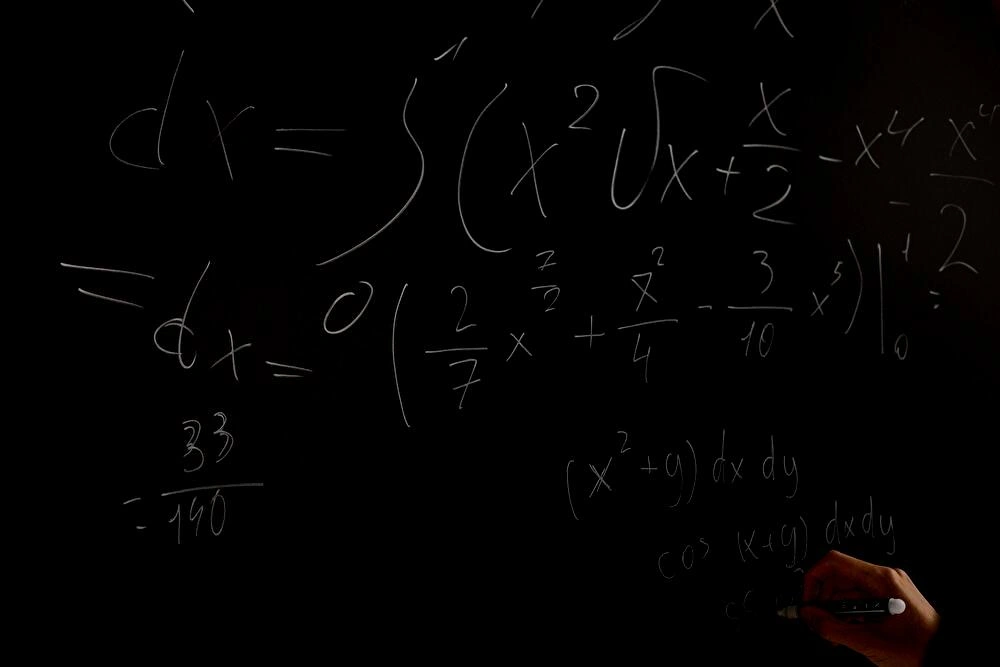 dx = ∫₀¹ (x² √x + x/2 - x⁴ - x⁴/2
= dx = (2/7 x^(7/2) + x²/4 - 3/10 x⁵)|₀¹ =
= 33/140
(x² + y) dx dy
cos (x+y) dx dy